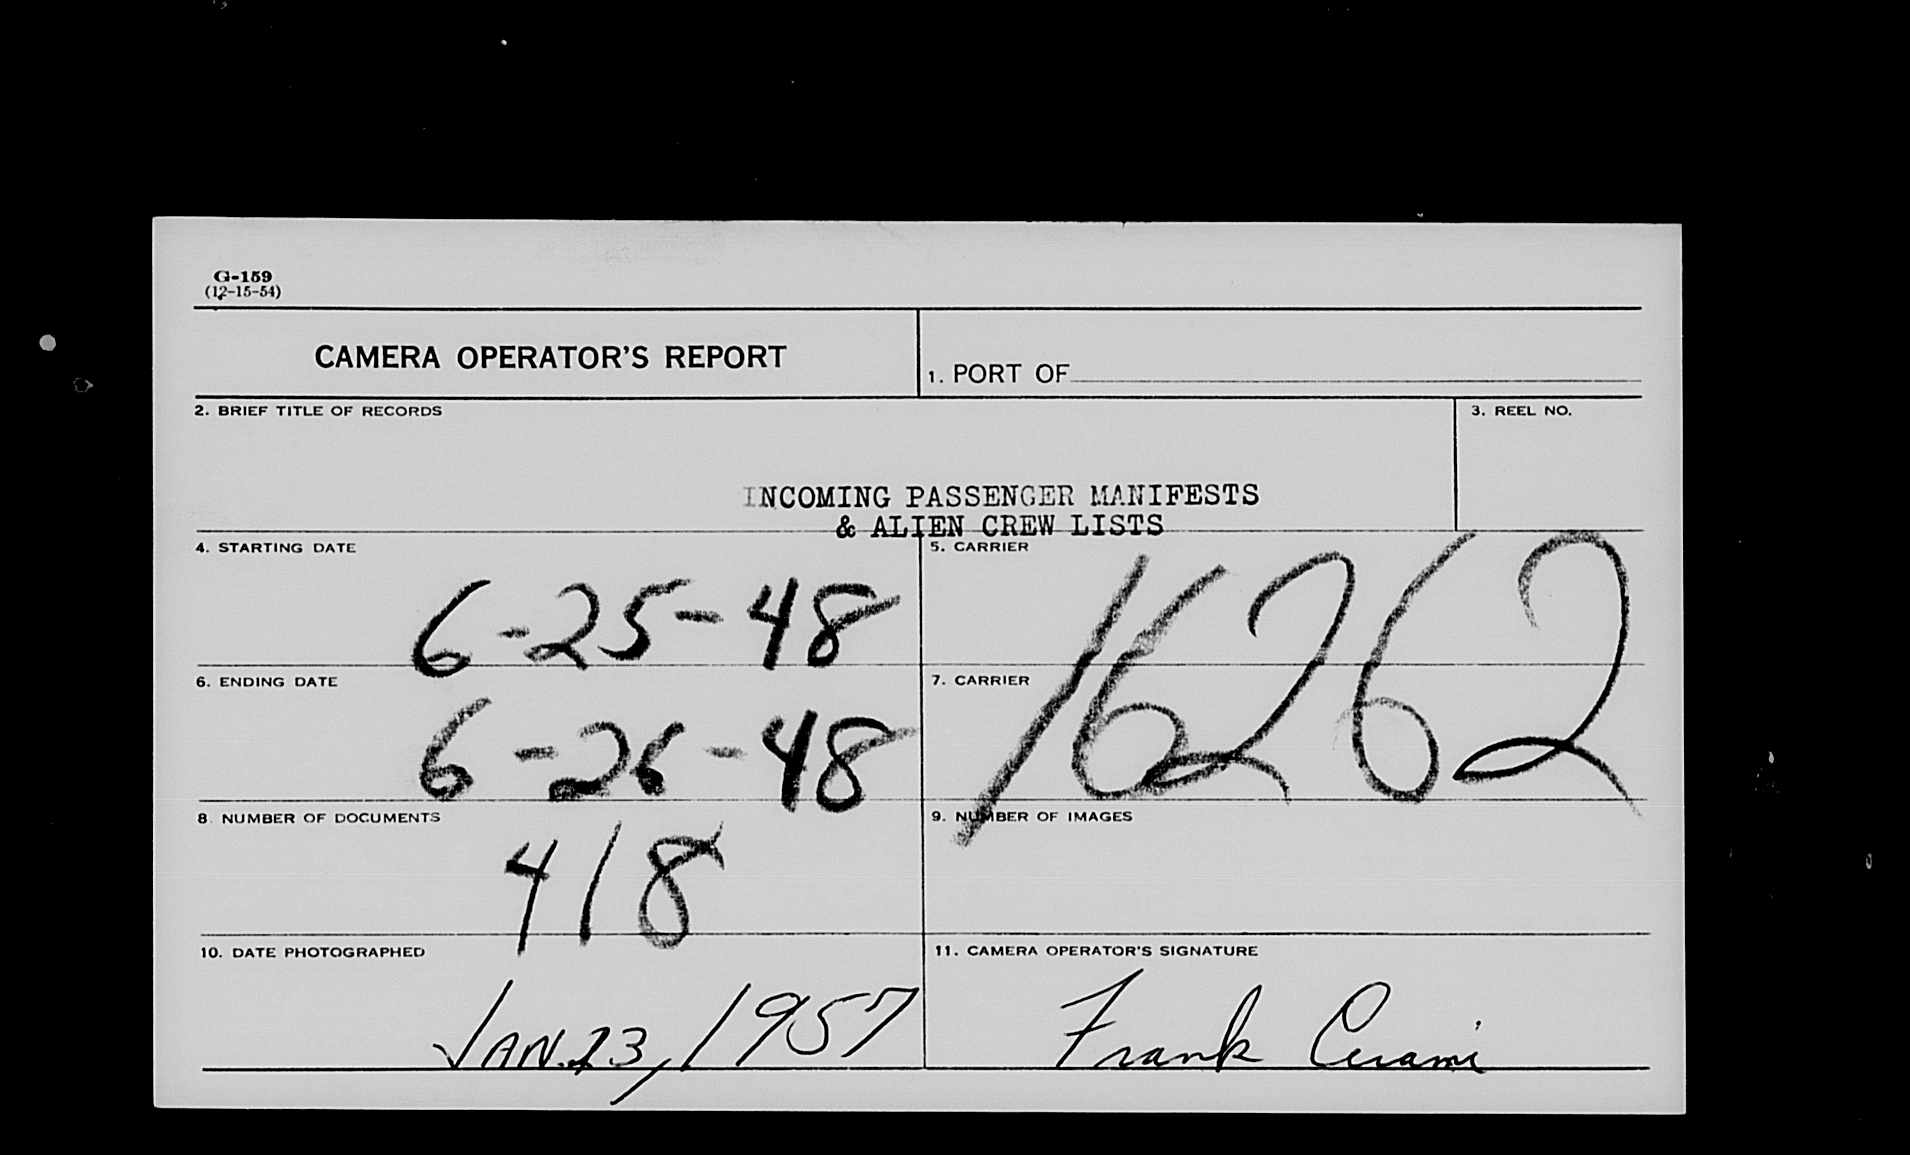 G-159
(12-15-54)
CAMERA OPERATOR'S REPORT
1. PORT OF
2. BRIEF TITLE OF RECORDS
3. REEL NO.
INCOMING PASSENGER MANIFESTS
& ALIEN CREW LISTS
4. STARTING DATE
6-25-48
5. CARRIER
16262
6. ENDING DATE
6-26-48
7. CARRIER
8. NUMBER OF DOCUMENTS
418
9. NUMBER OF IMAGES
10. DATE PHOTOGRAPHED
JAN. 23, 1957
11. CAMERA OPERATOR'S SIGNATURE
Frank Cerami